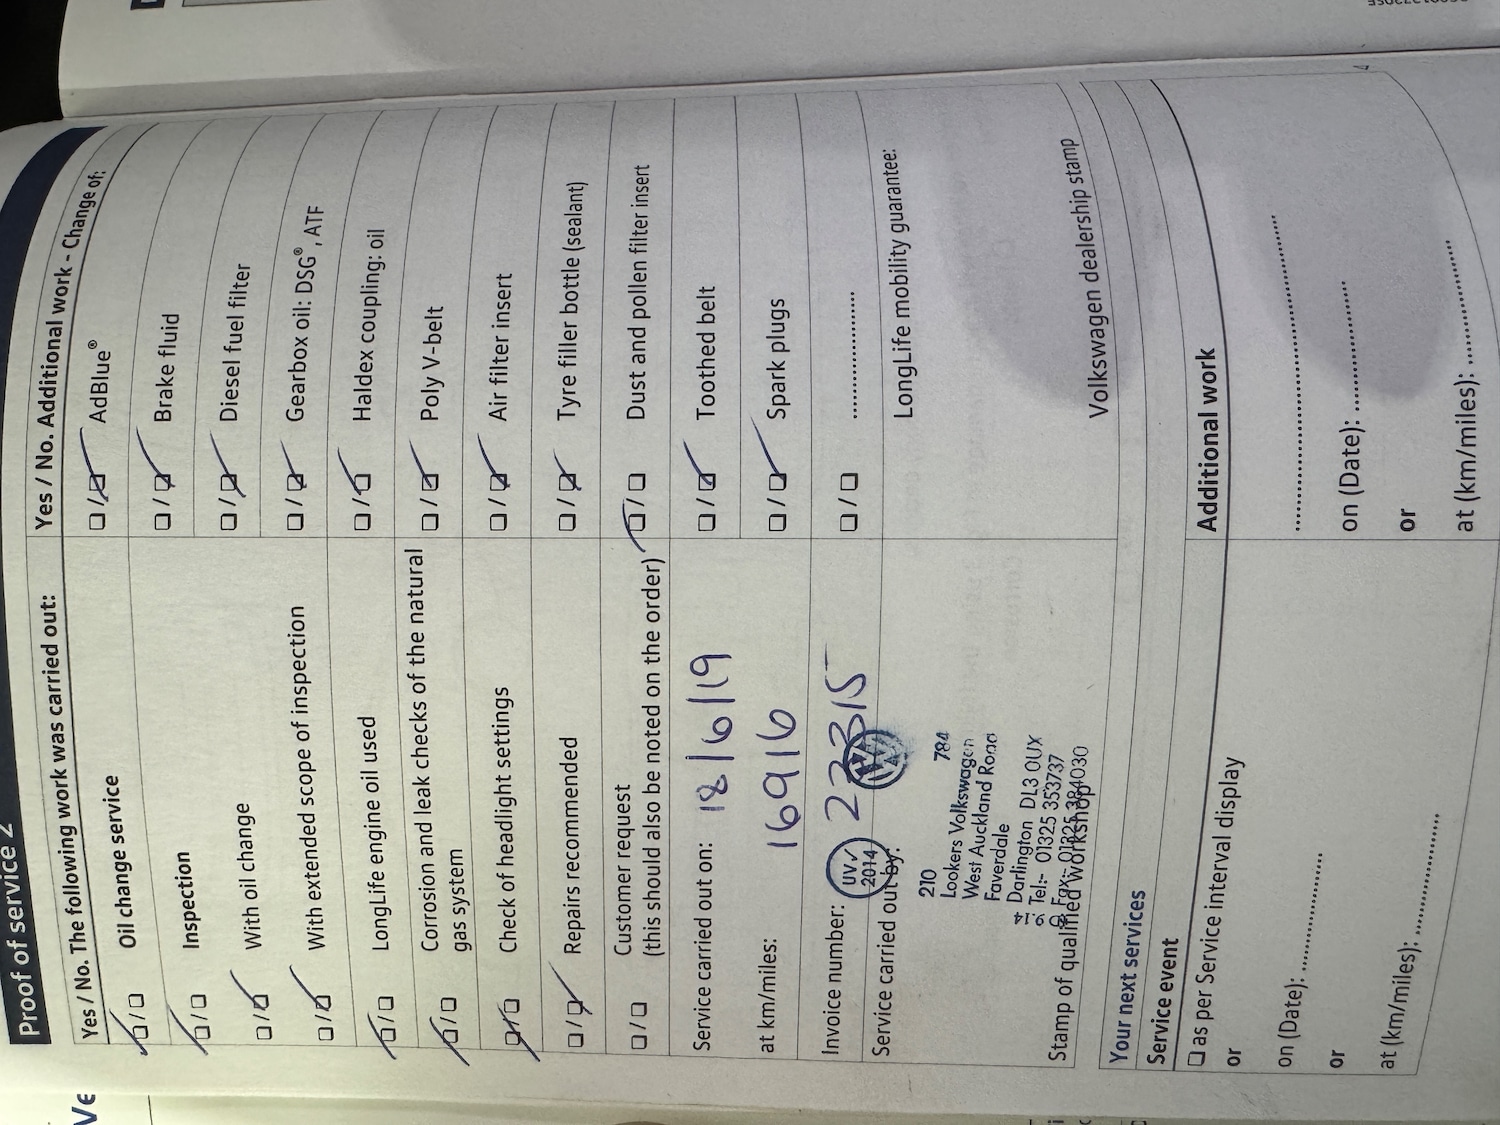 Proof of service 2
Yes / No. The following work was carried out:
☑/☐ Oil change service
☑/☐ Inspection
☐/☑ With oil change
☐/☑ With extended scope of inspection
☑/☐ LongLife engine oil used
☑/☐ Corrosion and leak checks of the natural
gas system
☑/☐ Check of headlight settings
☐/☑ Repairs recommended
☐/☐ Customer request
(this should also be noted on the order)
Service carried out on: 18/6/19
at km/miles: 16916
Invoice number: 22315
Service carried out by:
UV✓
2014
210 784
Lookers Volkswagen
West Auckland Road
Faverdale
Darlington DL3 0UX
Tel:- 01325 353737
Fax:- 01325 384030
Stamp of qualified workshop
Yes / No. Additional work - Change of:
☐/☑ AdBlue®
☐/☑ Brake fluid
☐/☑ Diesel fuel filter
☐/☑ Gearbox oil: DSG®, ATF
☐/☑ Haldex coupling: oil
☐/☑ Poly V-belt
☐/☑ Air filter insert
☐/☑ Tyre filler bottle (sealant)
☑/☐ Dust and pollen filter insert
☐/☑ Toothed belt
☐/☑ Spark plugs
☐/☐ ....................
LongLife mobility guarantee:
Volkswagen dealership stamp
Your next services
Service event
☐ as per Service interval display
or
on (Date): ....................
or
at (km/miles): ....................
Additional work
........................................
on (Date): ....................
or
at (km/miles): ....................
Ve